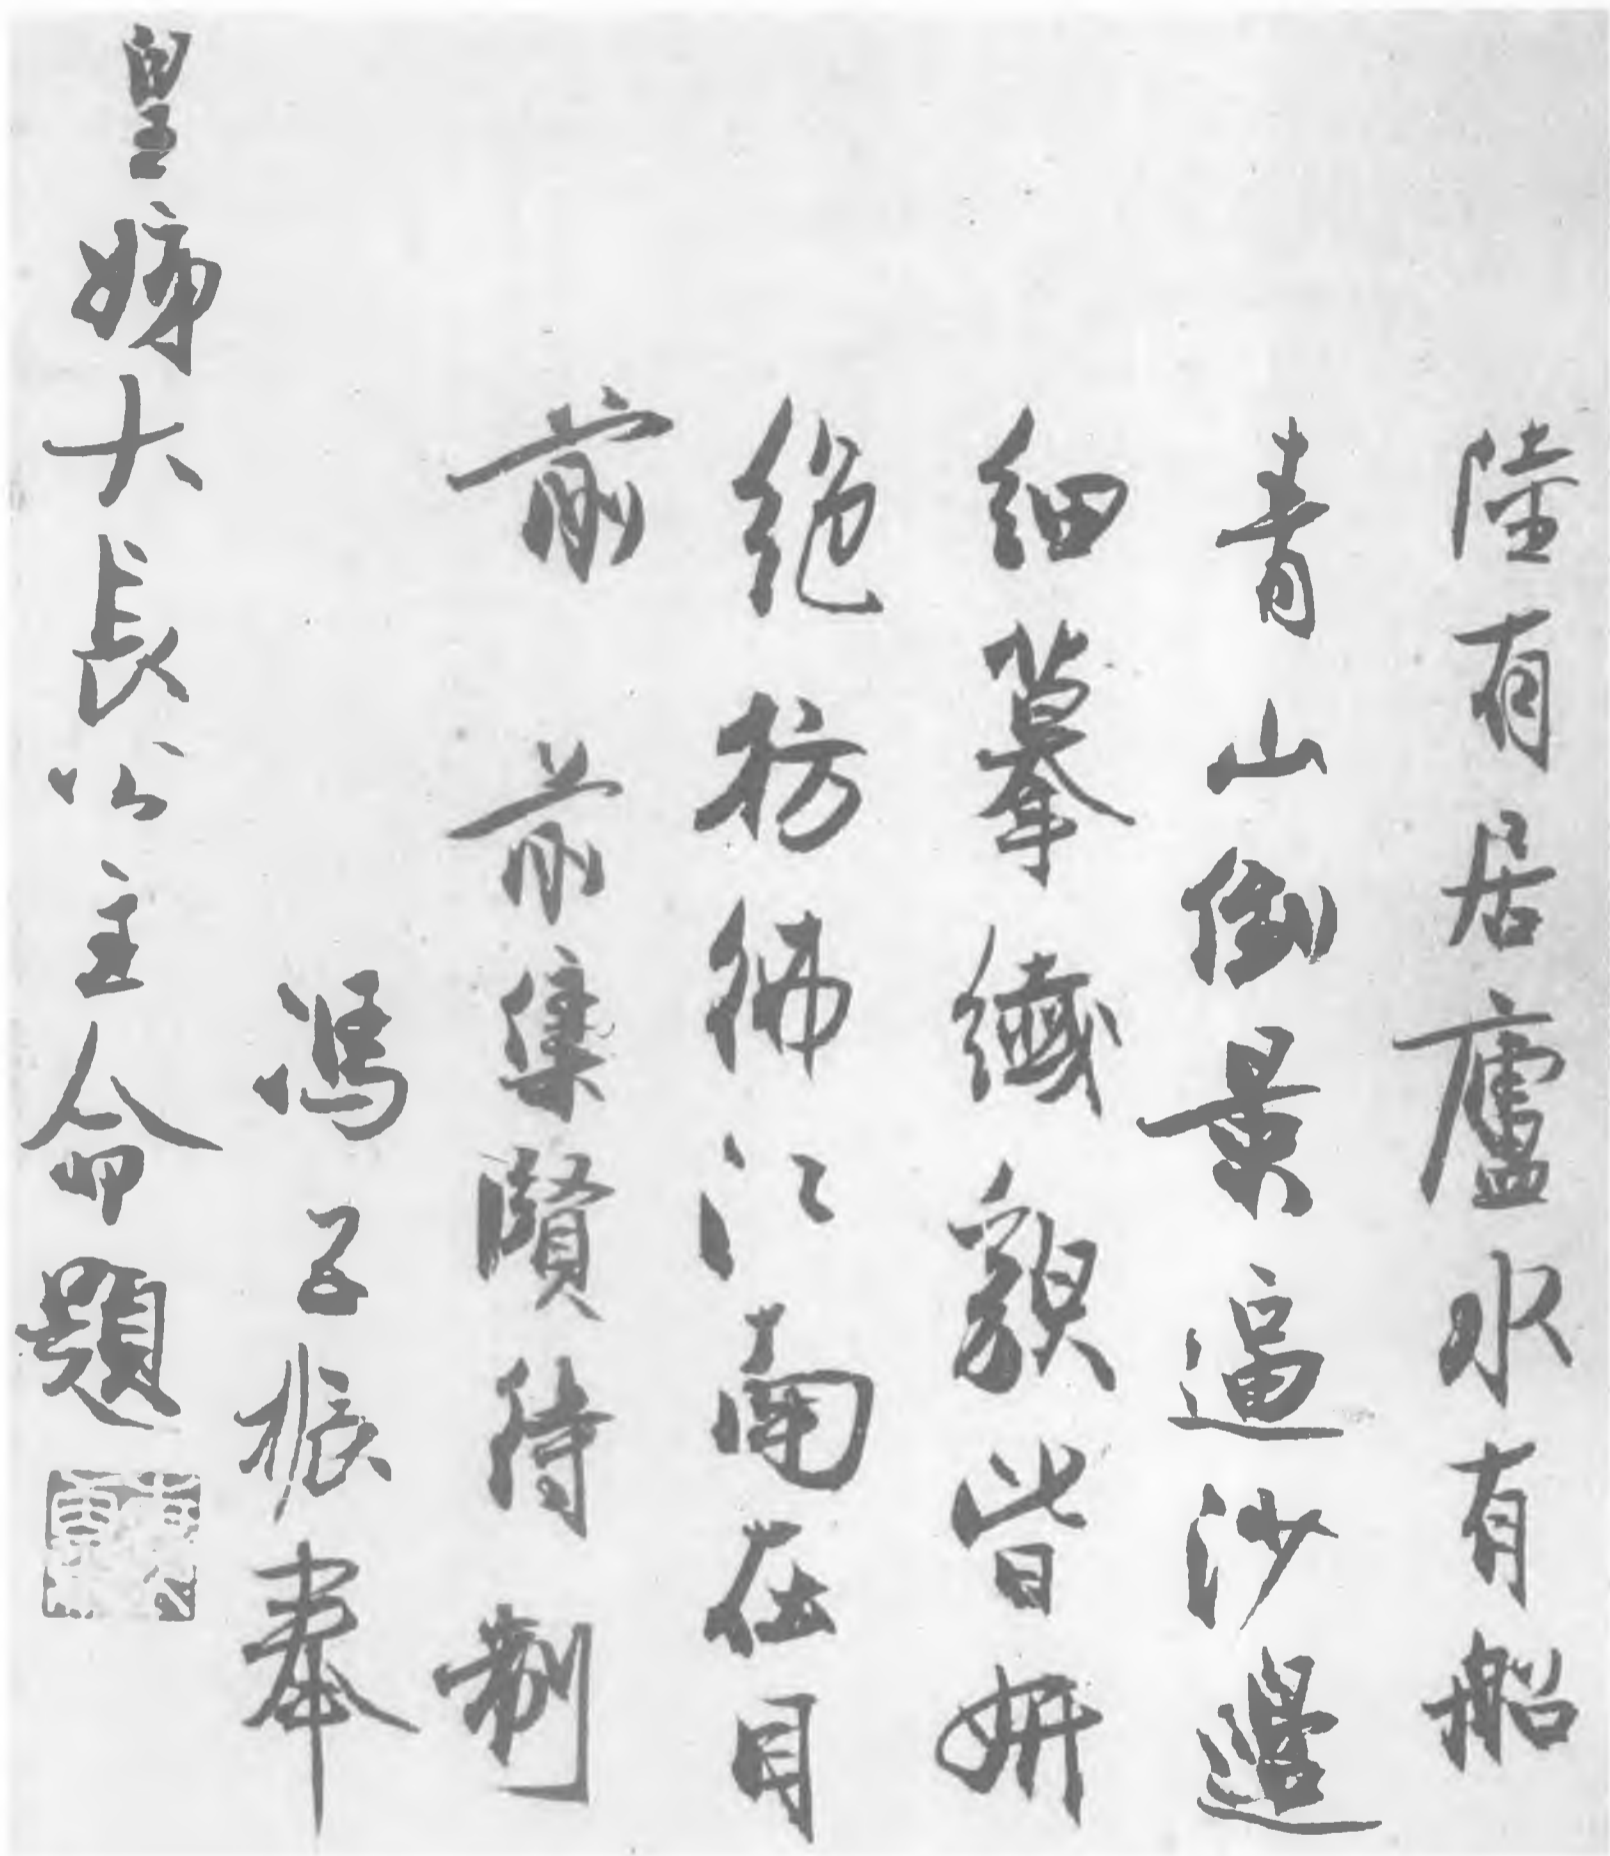 陸有居廬水有船
青山倒景逼沙邊
細摹纎貌皆妍
絕彷彿江南在目
前 前集賢待制
馮子振奉
皇姊大長公主命題